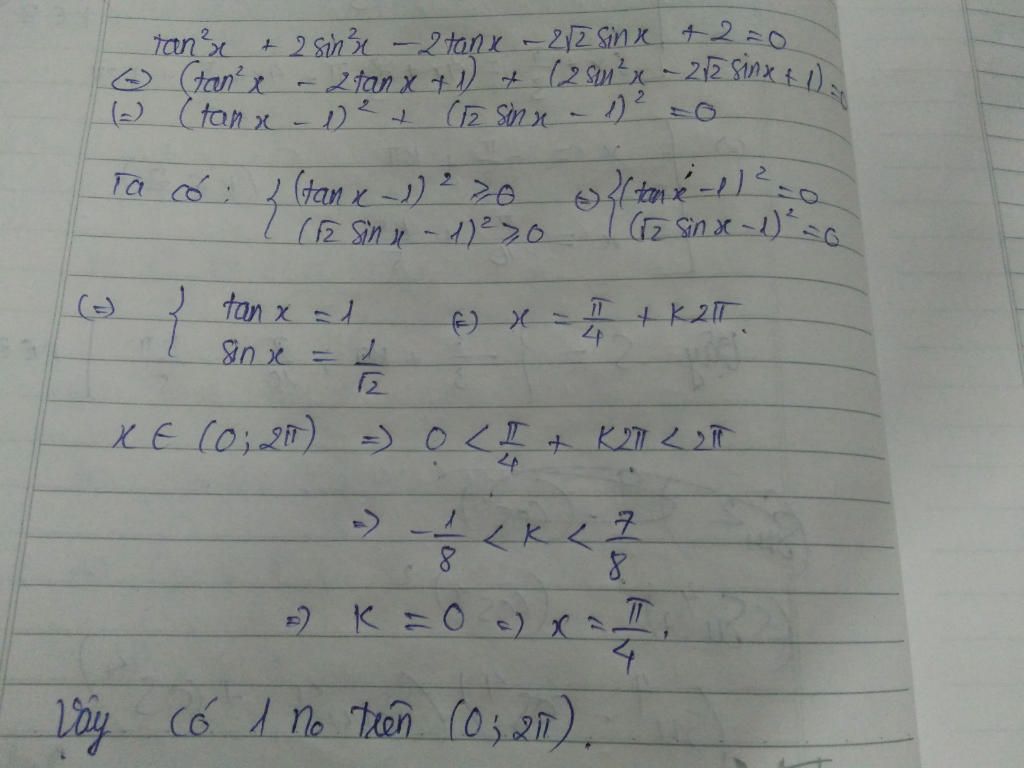 tan²x + 2sin²x - 2tanx - 2√2 sinx + 2 = 0
(=) (tan²x - 2tanx + 1) + (2sin²x - 2√2 sinx + 1) = 0
(=) (tanx - 1)² + (√2 sinx - 1)² = 0
Ta có: { (tanx - 1)² ≥ 0 (=) { (tanx - 1)² = 0
(√2 sinx - 1)² ≥ 0 (√2 sinx - 1)² = 0
(=) { tanx = 1 (=) x = π/4 + K2π.
sinx = 1/√2
x ∈ (0; 2π) => 0 < π/4 + K2π < 2π
=> -1/8 < K < 7/8
=> K = 0 => x = π/4.
Vậy có 1 no trên (0; 2π).